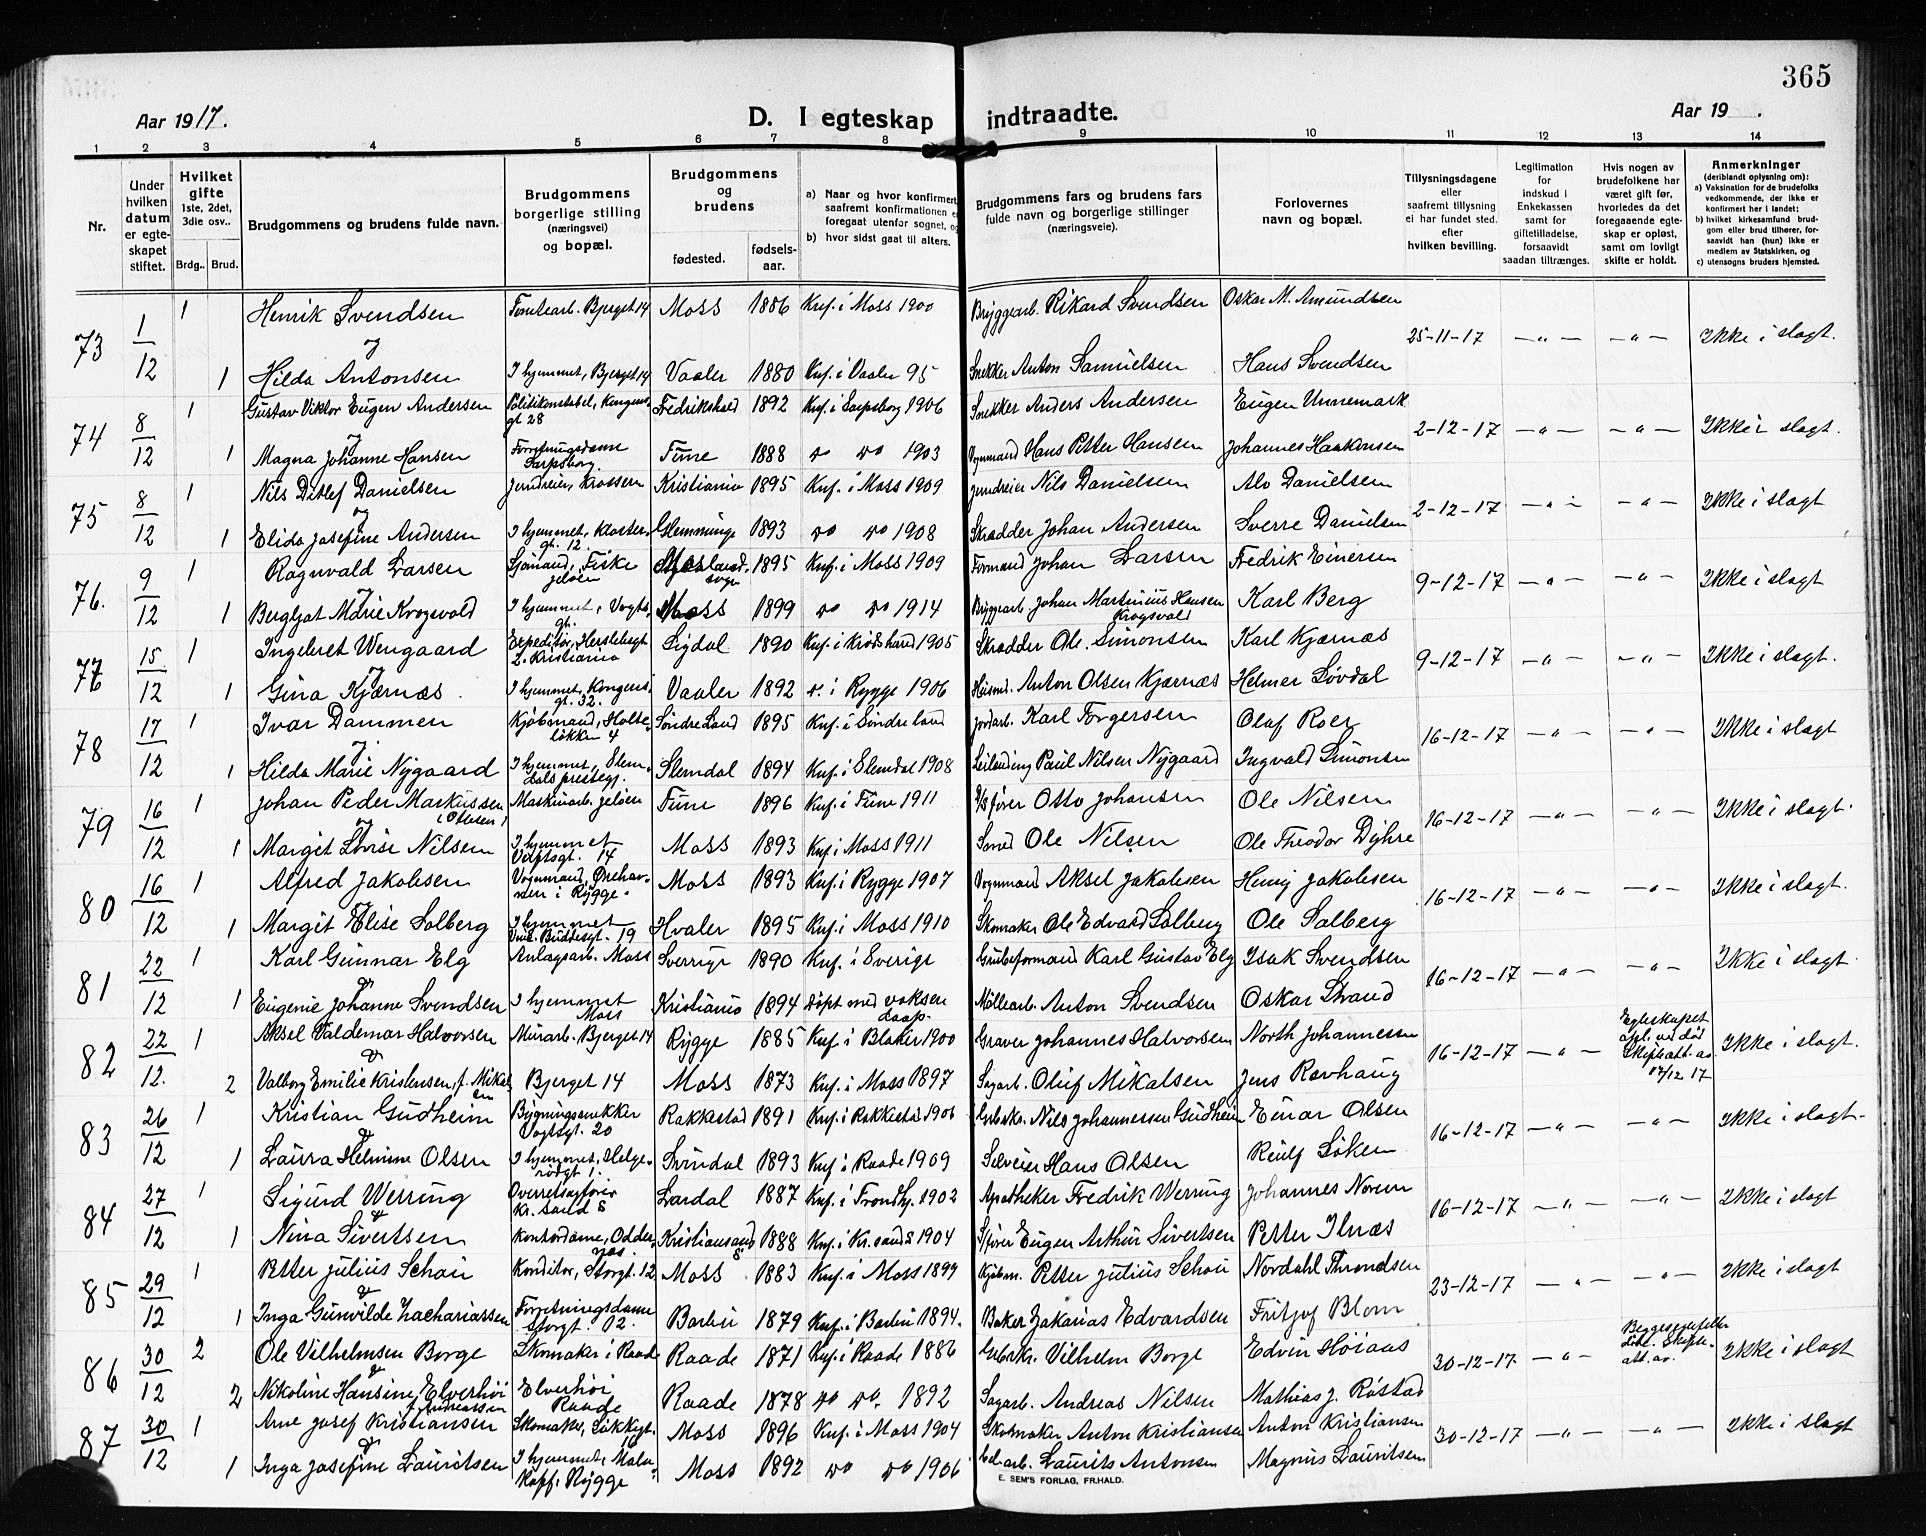 365
Aar 1917.
D. I egteskap indtraadte.
Aar 19 .
1 2 3 4 5 6 7 8 9 10 11 12 13 14
Nr.
Under hvilken datum er egteskapet stiftet.
Hvilket gifte 1ste, 2det, 3die osv..
Brdg.. Brud.
Brudgommens og brudens fulde navn.
Brudgommens borgerlige stilling (næringsvei) og bopæl.
Brudgommens og brudens
fødested.
fødselsaar.
a) Naar og hvor konfirmert, saafremt konfirmationen er foregaat utenfor sognet, og
b) hvor sidst gaat til alters.
Brudgommens fars og brudens fars fulde navn og borgerlige stillinger (næringsveie).
Forlovernes navn og bopæl.
Tillysningsdagene eller saafremt tillysning ei har fundet sted. efter hvilken bevilling.
Legitimation for indskud i Enkekassen samt for giftetilladelse, forsaavidt saadan tiltrænges.
Hvis nogen av brudefolkene har været gift før, hvorledes da det foregaaende egteskap er opløst, samt om lovligt skifte er holdt.
Anmerkninger (deriblandt oplysning om):
a) Vaksination for de brudefolks vedkommende, der ikke er konfirmert her i landet;
b) hvilket kirkesamfund brudgom eller brud tilhører, forsaavidt han (hun) ikke er medlem av Statskirken, og
c) utensogns bruders hjemsted.
73 1/12 1 Henrik Svendsen Bjerget 14 Moss 1886 Knf. i Moss 1900 Bryggearb. Rikard Svendsen Oskar M. Amundsen 25-11-17 -"- -"- Ikke i slagt.
1 Hilda Antonsen I hjemmet, Bjerget 14 Vaaler 1880 Knf. i Vaaler 95 Snekker Anton Samuelsen Hans Svendsen
74 8/12 1 Gustav Viktor Eugen Andersen Politikonstabel, Kongensgt 28 Fredrikshald 1892 Knf. i Sarpsborg 1906 Snekker Anders Andersen Eugen Unnemark 2-12-17 -"- -"- Ikke i slagt.
1 Magna Johanne Hansen Forretningsdame Sarpsborg. Tune 1888 do do 1903 Vognmand Hans Petter Hansen Johannes Haakonsen
75 8/12 1 Nils Ditlef Danielsen Jerndreier, Krossern Kristiania 1895 Knf. i Moss 1909 Jerndreier Nils Danielsen Alv Danielsen 2-12-17 -"- -"- Ikke i slagt
1 Elida Josefine Andersen I hjemmet, Klostergt. 12 Glemminge 1893 do do 1908 Skrædder Johan Andersen Sverre Danielsen
76. 9/12 1 Ragnvald Larsen Sjømand, Fiske Jeløen 1895 Knf. i Moss 1909 Formand Johan Larsen Fredrik Einersen 9-12-17 -"- -"- Ikke i slagt
1 Bergljot Marie Krogsvold I hjemmet, Vogtsgt. Moss 1899 do do 1914 Bryggearb. Johan Martinius Hansen Krogsvold Karl Berg
77 15/12 1 Ingebret Wengaard Expeditør, Herslebsgt 2. Kristiania Sigdal 1890 Knf. i Krødsherad 1905 Skrædder Ole Simonsen Karl Kjærnæs 9-12-17 -"- -"- Ikke i slagt.
1 Gina Kjærnæs I hjemmet, Kongensgt. 32. Vaaler 1892 i Rygge 1906 Husmd. Anton Olsen Kjærnæs Helmer Løvdal
78 17/12 1 Ivar Dammen Kjøbmand, Holteløkken 4 Søndre Land 1895 Knf. i Søndre Land Jordarb. Karl Torgersen Olaf Roer 16-12-17 -"- -"- Ikke i slagt
1 Hilda Marie Nygaard I hjemmet, Slemdals prestegj. Slemdal 1894 Knf. i Slemdal 1908 Leilending Paul Nilsen Nygaard Ingvald Simonsen
79 16/12 1 Johan Peder Markussen (Ottesen) Maskinarb. Jeløen Tune 1896 Knf. i Tune 1911 S/fører Otto Johansen Ole Nilsen 16-12-17 -"- -"- Ikke i slagt.
1 Margit Lovise Nilsen I hjemmet Vogtsgt. 14 Moss 1893 Knf. i Moss 1911 Smed Ole Nilsen Ole Theodor Dyhre
80 16/12 1 Alfred Jakobsen Vognmand, Ørehavnen i Rygge. Moss 1893 Knf. i Rygge 1907 Vognmand Aksel Jakobsen Henry Jakobsen 16-12-17 -"- -"- Ikke i slagt.
1 Margit Elise Solberg I hjemmet Buddesgt. 19 Hvaler 1895 Knf. i Moss 1910 Skomaker Ole Edvard Solberg Ole Solberg
81 22/12 1 Karl Gunnar Elg Anlagsarb. Moss Sverrige 1890 Knf. i Sverige Grubeformand Karl Gustav Elg Isak Svendsen 16-12-17 -"- -"- Ikke i slagt
1 Eugenie Johanne Svendsen I hjemmet Moss Kristiania 1894 døpt med voksen daap. Møllearb. Anton Svendsen Oskar Strand
82 22/12. 1 Aksel Valdemar Halvorsen Murarb. Bjerget 14 Rygge 1885 Knf. i Blaker 1900 Graver Johannes Halvorsen North Johannessen 16-12-17 -"- Egteskapet opl. ved død Skifteatt. av 17/12 17 Ikke i slagt.
2 Valborg Emilie Kristensen, f. Mikalsen Bjerget 14 Moss 1873 Knf. i Moss 1897 Sagarb. Oluf Mikalsen Jens Ravhaug
83 26/12 1 Kristian Gudheim Bygningssnekker Vogtsgt. 20 Rakkestad 1891 Knf. i Rakkestad 1906 Grbrkr. Nils Johannessen Gudheim Einar Olsen 16-12-17 -"- -"- Ikke i slagt.
1 Laura Helmine Olsen I hjemmet, Helgerødgt 1. Svindal 1893 Knf. i Raade 1909 Selveier Hans Olsen Reulf Løken
84 27/12 1 Sigurd Werring Overretssagfører Kr.sand S Lardal 1887 Knf. i Trondhj. 1902 Apotheker Fredrik Werring Johannes Noren 16-12-17 -"- -"- Ikke i slagt
1 Nina Sivertsen Kontordame, Oddernæs. Kristianssand S 1888 Knf. i Kr.sand S 1904 S/fører Eugen Arthur Sivertsen Petter Ilnæs
85 29/12 1 Petter Julius Schou Konditor, Storgt. 12 Moss 1883 Knf. i Moss 1899 Kjøbm. Petter Julius Schou Nordahl Throndsen 23-12-17 -"- -"- Ikke i slagt
1 Inga Gunvilde Zachariassen Forretningsdame Storgt. 12. Barbu 1879 Knf. i Barbu 1894. Baker Zakarias Edvardsen Fritjof Blom
86 30/12 2 Ole Vilhelmsen Borge Skomaker i Raade Raade 1871 Knf. i Raade 1886 Grbrkr. Vilhelm Borge Edvin Høiaas 30-12-17. -"- Begges egtefeller død. Skifteatt. av. Ikke i slagt
2 Nikoline Hansine Elverhøi f. Andreassen Elverhøi Raade Raade 1878 do do. 1892 Sagarb. Andreas Nilsen Mathias J. Røstad
87 30/12 1 Arne Josef Kristiansen Skomaker, Løkkegt. 16 Moss 1896 Knf. i Moss 1904 Skomaker Anton Kristiansen Anton Kristiansen 30-12-17 -"- -"- Ikke i slagt
1 Inga Josefine Lauritsen I hjemmet, Malakoff i Rygge Moss 1892 do do 1906 arb. Laurits Antonsen Magnus Lauritsen
E. SEM'S FORLAG, FR.HALD.